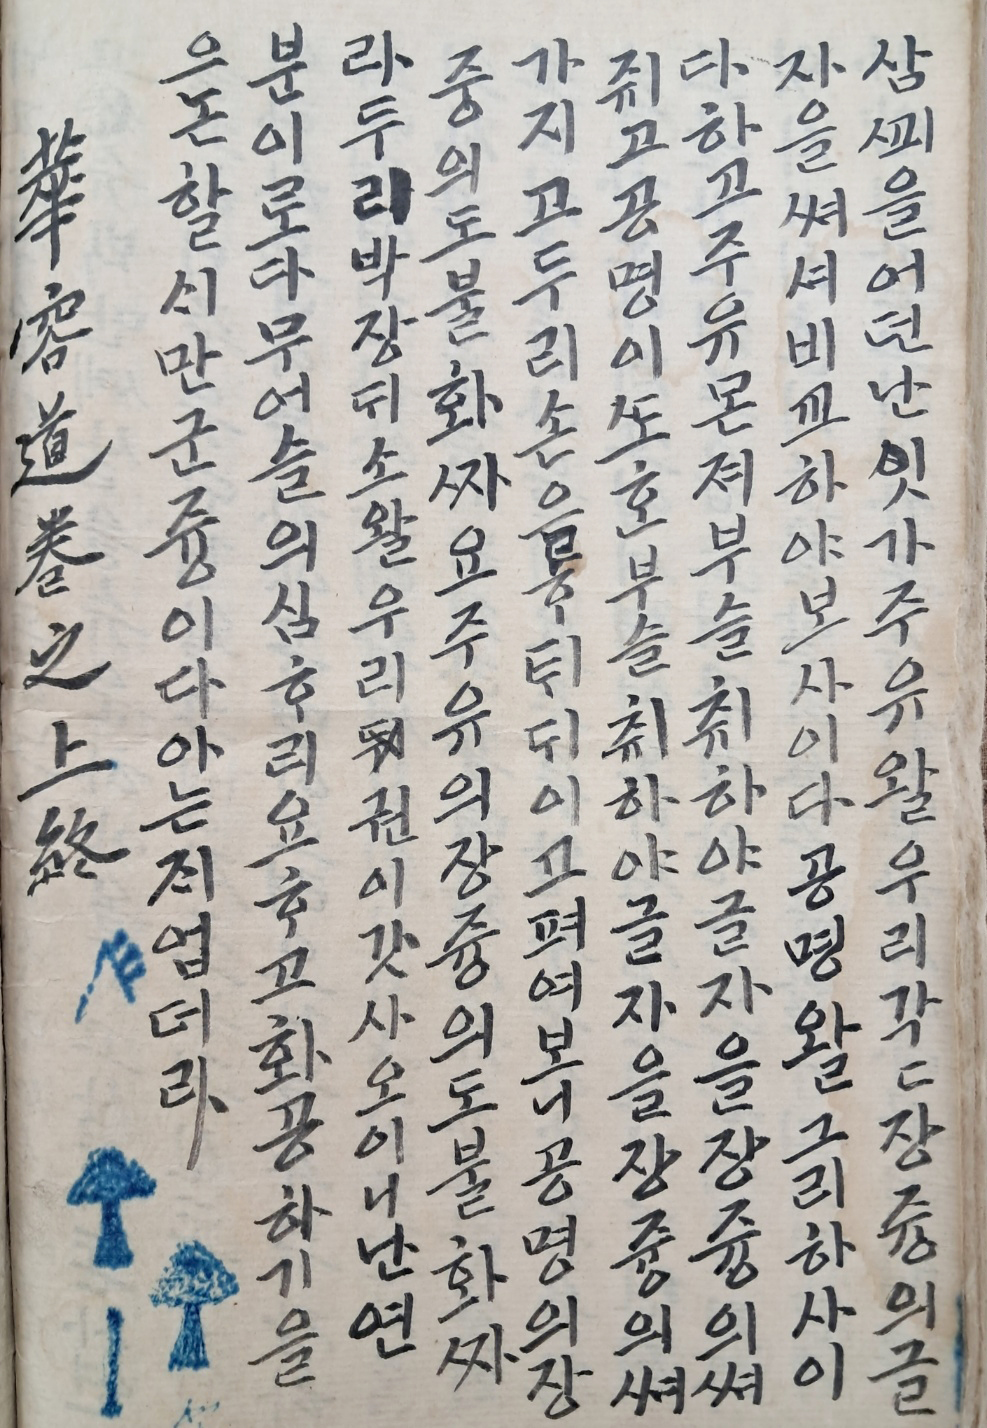 삼씨을어던난잇가주유왈우리각ᄃ장즁의글
자을쎠셔비교하야보사이다공명왈그리하사이
다하고주유몬져부슬취하야글자을장즁의쎠
쥐고공명이또호부슬취하야글자을장즁의쎠
가지고두리손을뒤이고펴여보니공명의장
중의도불화짜요주유의장즁의도불화짜
라두리박장뒤소왈우리권이갓사오이니난연
분이로다무어슬의심후리요후고화공하기을
은논할시만군즁이다아는지업더라
華容道卷之上終